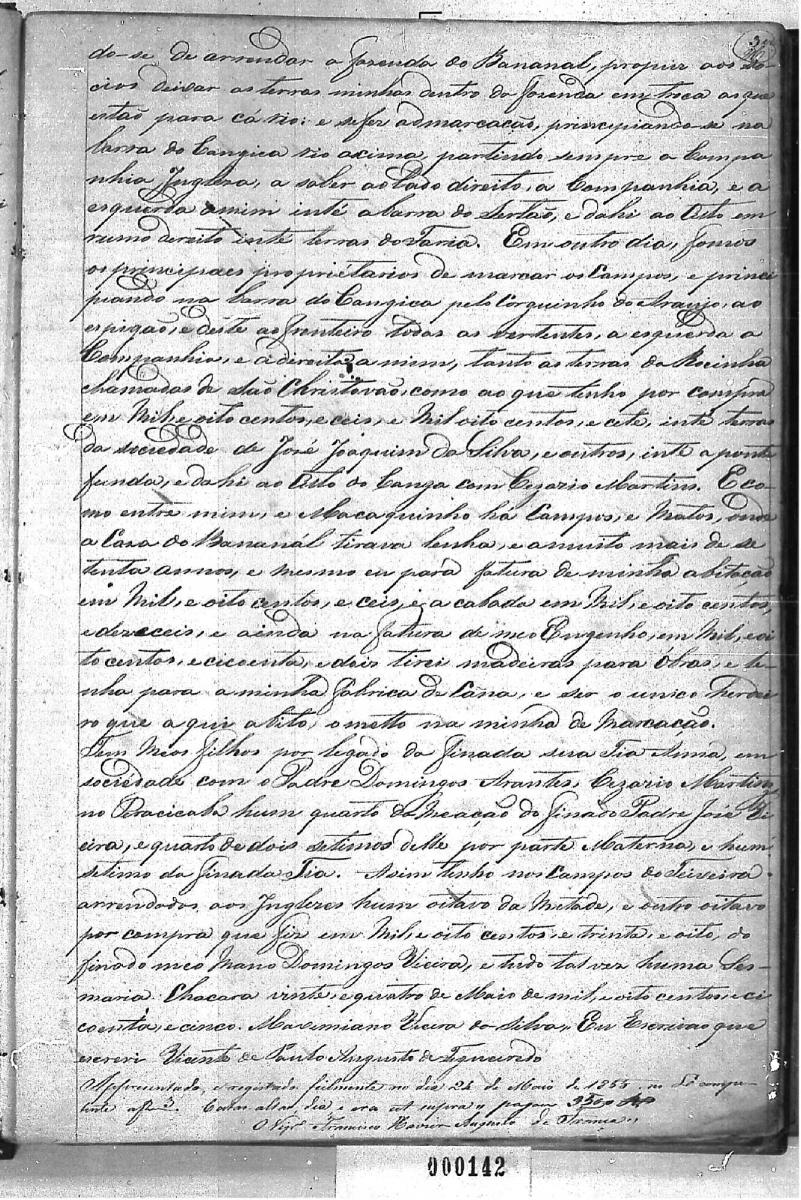 do-se de arrendar a fazenda do Bananal, propuz aos so-
cios deixar as terras minhas dentro da fazenda em troca as que
estaõ para cá rio: e se fez a demarcação, principiando-se na
barra do Cangica rio acima, partindo sempre a Compa
nhia Ingleza, a saber ao lado direito, a Companhia, e a
esquerda a mim inté a barra do Sertão, e dahi ao Alto em
rumo dereito inté terras do Faria. Em outro dia, fomos
os principaes proprietarios de marcar os Campos, e princi
piando na barra do Cangica pelo Corguinho do Araujo, ao
espigaõ, e deste ao fronteiro todas as vertentes, a esquerda a
Companhia, e a direita a mim, tanto as terras da Rocinha
chamadas de Saõ Christovaõ, como ao que tenho por compra
em Mil e oito centos, e ceis, e Mil oito centos, e cete, inté terras
da sociedade de José Joaquim da Silva, e outros, inte a ponte
funda, e dahi ao Alto do Canga com Cezario Martins. E co-
mo entre mim, e Macaquinho há Campos, e Matos, onde
a Caza do Bananál tirava lenha, e a muito mais de se
tenta annos, e mesmo eu pará fatura de minha abitação
em Mil, e oito centos, e ceis, e a cabada em Mil, e oito centos,
e dezeceis, e ainda na fatura de meo Engenho, em Mil, e oi
to centos, e cicoenta, e dois tirei madeiras para obras, e le-
nha para a minha fabrica de Cana, e ser o unico herdei
ro que aqui abito, o metto na minha de Marcação.
Tem Meos filhos por legado da finada sua Tia Anna, em
sociedade com o Padre Domingos Arantes, Cezario Martins
no Peracicaba hum quarto da Meação do finado Padre José Vi
eira, e quarto de dois setimos delle por parte Materna, e hum
setimo da finada Tia. Asim tenho nos Campos do Teixeira
arrendados aos Inglezes hum oitavo da Metade, e outro oitavo
por compra que fiz em Mil, e oito centos, e trinta, e oito, do
finado meo Mano Domingos Vieira, e tudo tal vez huma Ses-
maria. Chacara vinte, e quatro de Maio de mil, e oito centos, e ci
coenta, e cinco. Maximiano Vieira da Silva, Eu Escrivaõ que
escrevi Vicente de Paulo Augusto de Figueiredo
Apresentado, e registrado fielmente no dia 24 de Maio de 1855 no Lº compe-
tente a fl 3. Cattas altas, dia e era ut supra pagou
O Vigrº Francisco Xavier Augusto de França
000142